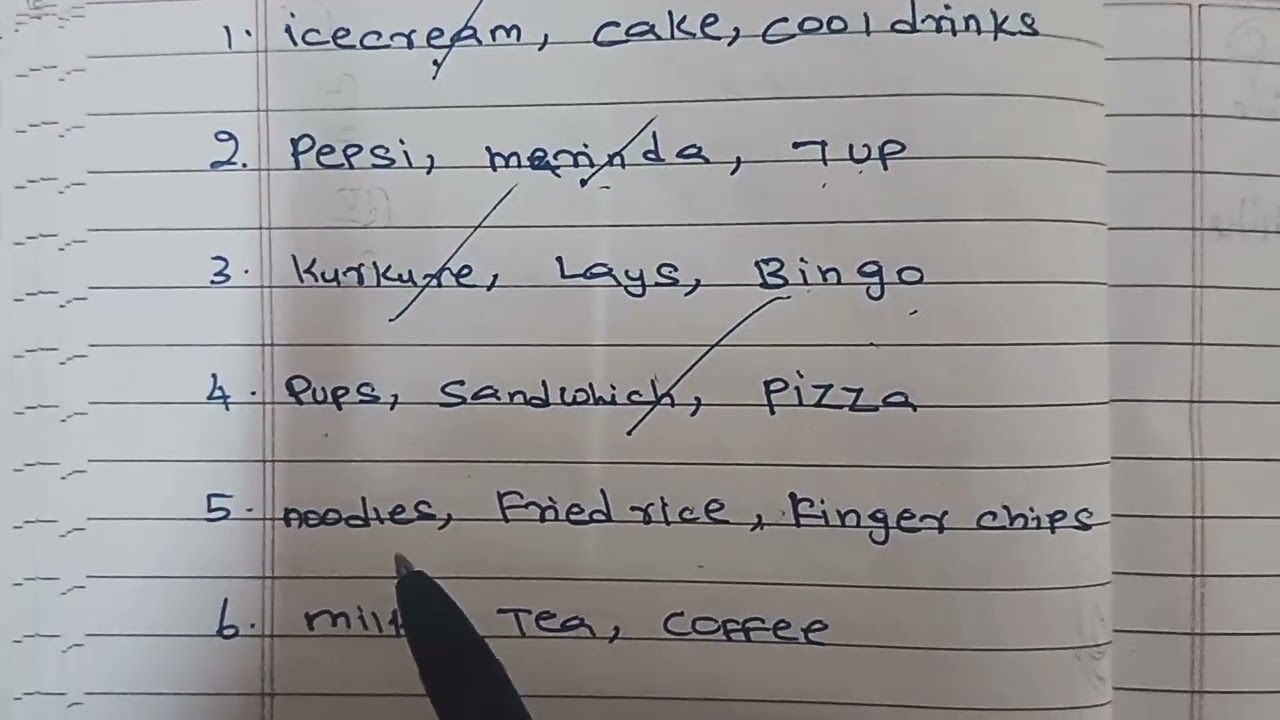 1. icecream, cake, cool drinks
2. Pepsi, merinda, 7 UP
3. Kurkure, Lays, Bingo
4. Pups, Sandwhich, Pizza
5. noodles, Fried rice, Finger chips
6. Tea, Coffee